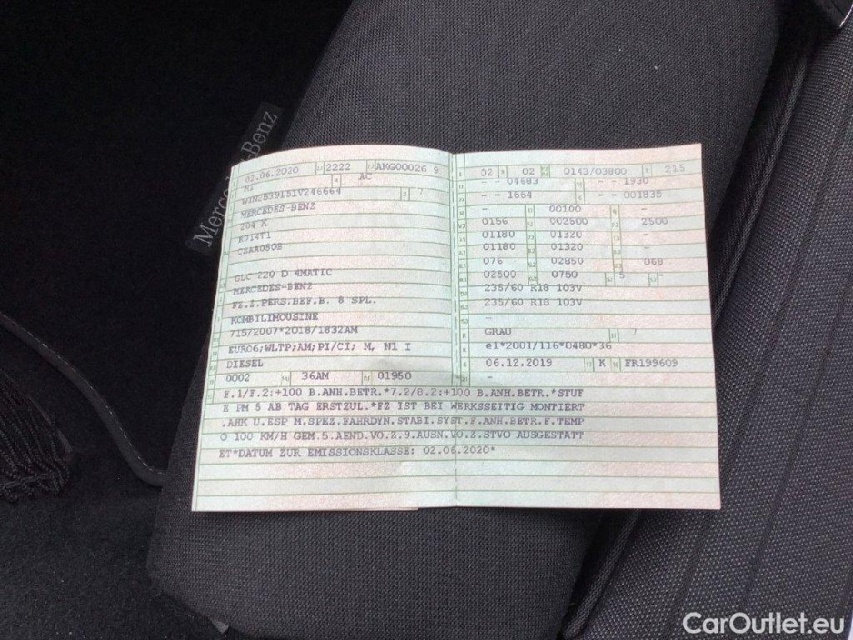 Mercedes-Benz
02.06.2020 2222 AKG00026 9
M1 AC
W1N2539151V246664 7
MERCEDES-BENZ
204 X
R714T1
CZAA0508
GLC 220 D 4MATIC
MERCEDES-BENZ
FZ.Z.PERS.BEF.B. 8 SPL.
KOMBILIMOUSINE
715/2007*2018/1832AM
EURO6;WLTP;AM;PI/CI; M, N1 I
DIESEL
0002 36AM 01950
02 02 0143/03800 215
- - 04683 - - 1930
- - 1664 - - 001835
- 00100 -
0156 002500 2500
01180 01320 -
01180 01320 -
076 02850 068
02500 0750 5 -
235/60 R18 103V
235/60 R18 103V
-
GRAU 7
e1*2001/116*0480*36
06.12.2019 K FR199609
F.1/F.2:+100 B.ANH.BETR.*7.2/8.2:+100 B.ANH.BETR.*STUF
E PM 5 AB TAG ERSTZUL.*FZ IST BEI WERKSSEITIG MONTIERT
.AHK U.ESP M.SPEZ.FAHRDYN.STABI.SYST.F.ANH.BETR.F.TEMP
O 100 KM/H GEM.5.AEND.VO.Z.9.AUSN.VO.Z.STVO AUSGESTATT
ET*DATUM ZUR EMISSIONSKLASSE: 02.06.2020*
CarOutlet.eu